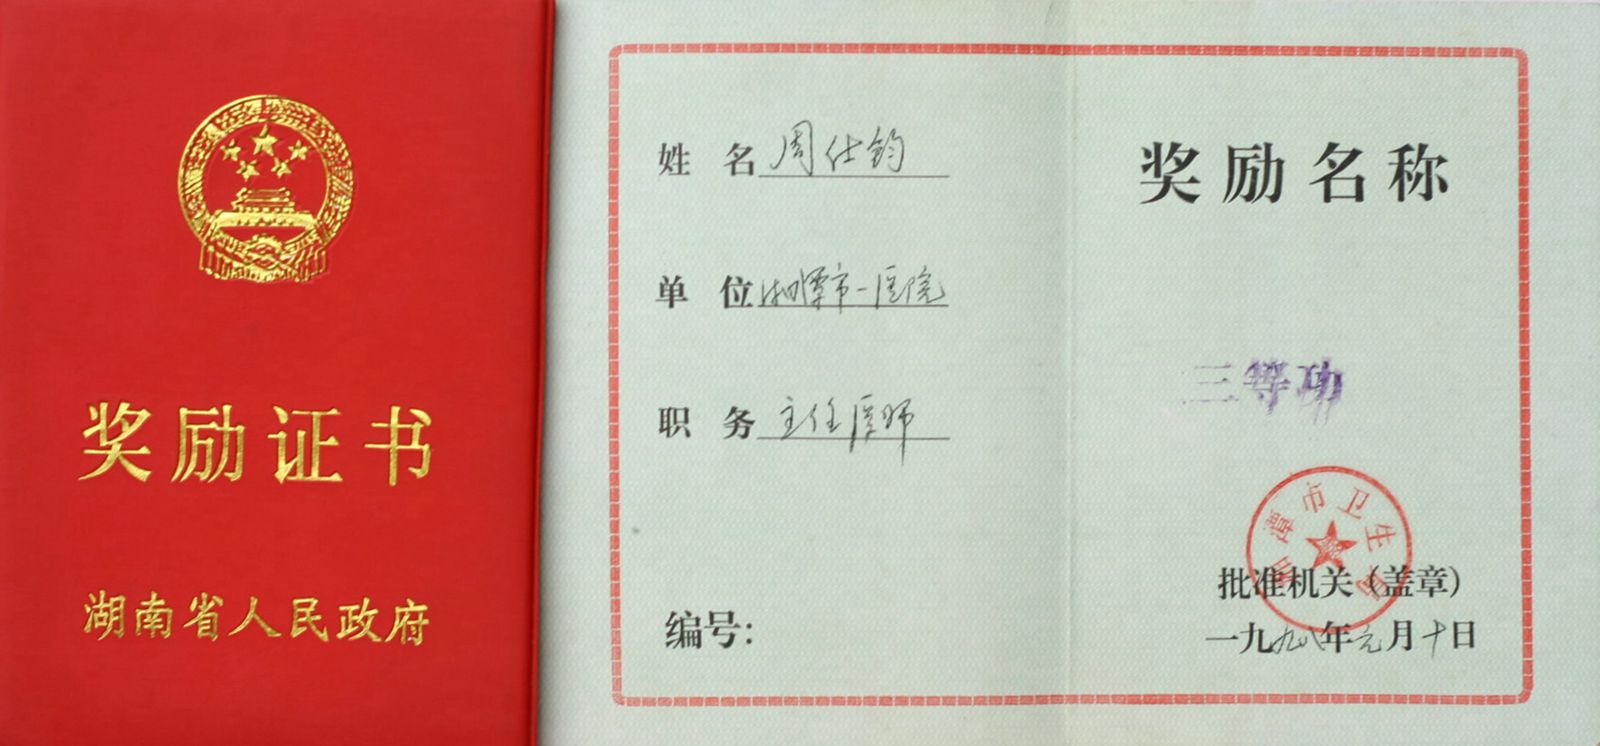 奖励证书
湖南省人民政府
姓名 周仕钧
单位 湘潭市一医院
职务 主任医师
编号:
奖励名称
三等功
湘潭市卫生局
批准机关(盖章)
一九九八年元月十日